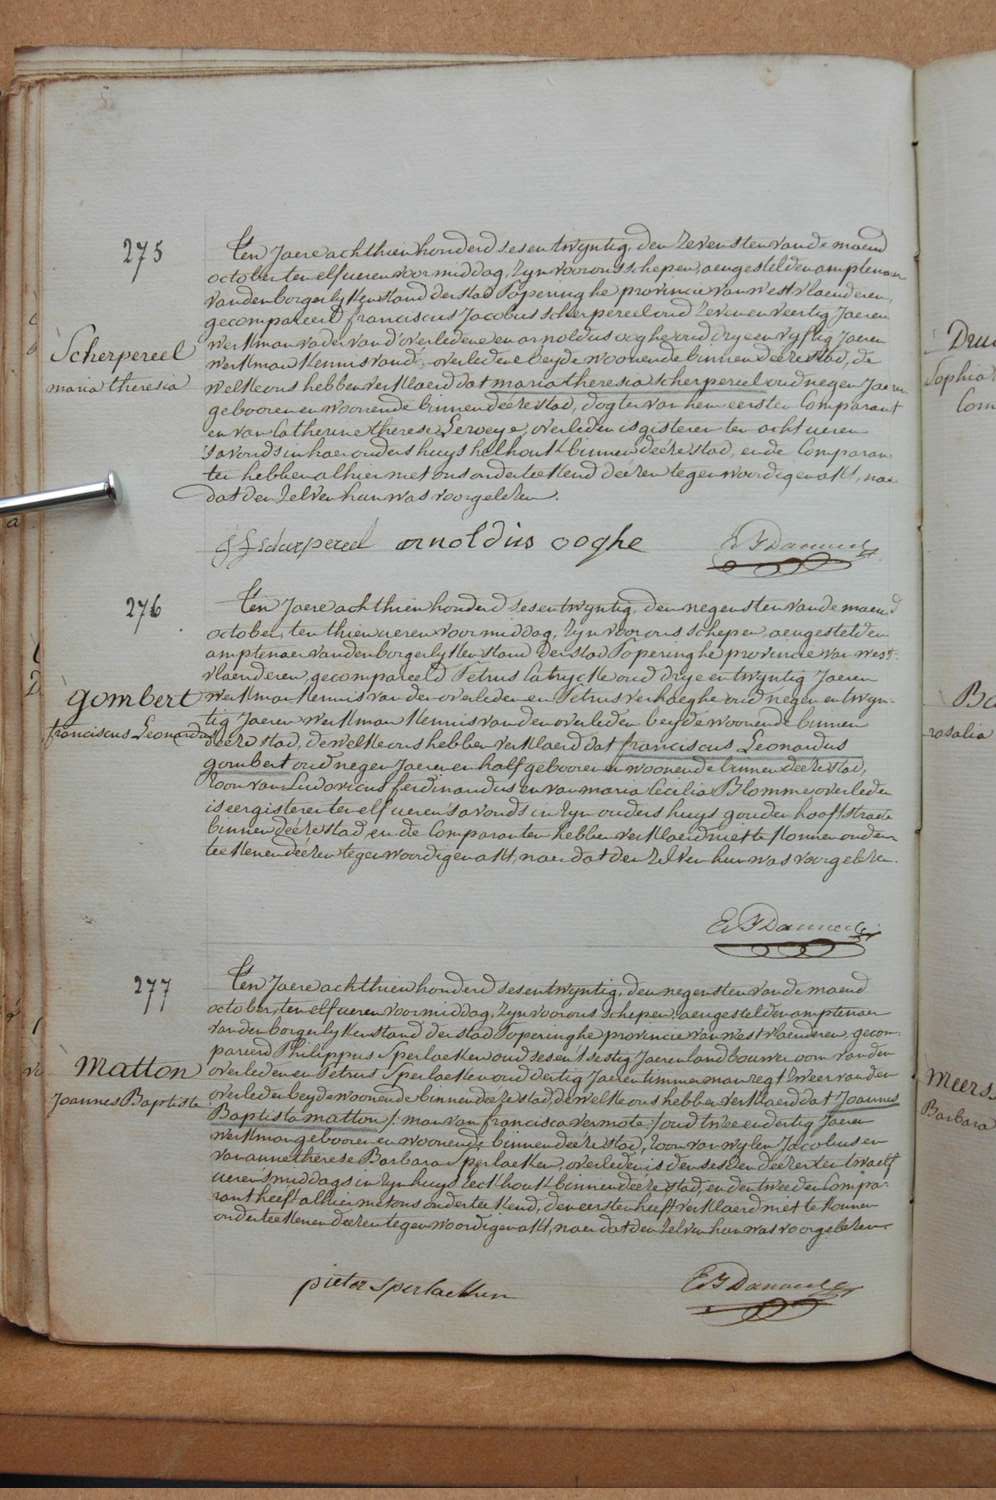 275
Scherpereel
maria theresia
Ten Jaere achthien honderd sesentwyntig, den zevensten van de maend
october ten elf ueren voormiddag, zyn voor ons schepen, aengestelden amptenaer
van den borgerlyken stand der stad Poperinghe provincie van westvlaenderen,
gecompareerd franciscus Jacobus scherpereel oud zeven en veertig Jaeren
werkman vader van d'overledene en arnoldus ooghe oud drye en vyftig Jaeren
werkman kennis van d'overledene beyde woonende binnen deéze stad, de
welke ons hebben verklaerd dat maria theresia scherpereel oud negen Jaeren
gebooren en woonende binnen deéze stad, dogter van hem eersten Comparant
en van Catherine therese Lerveye, overleden is gisteren ten acht ueren
s'avonds in haer ouders huys helhoek binnen deéze stad, en de Comparan-
ten hebben alhier met ons onderteekend deézen tegenwoordigen akt, naer
dat den zelven hun was voorgelezen.
f J scherpereel arnoldus ooghe
276
gombert
franciscus Leonardus
Ten Jaere achthien honderd sesentwyntig, den negensten van de maend
october, ten thien ueren voormiddag, zyn voor ons schepen, aengestelden
amptenaer van den borgerlyken stand der stad Poperinghe provincie van west-
vlaenderen, gecompareerd Petrus Latrycke oud drye en twyntig Jaeren
werkman kennis van den overleden en Petrus verhaeghe oud negen en twyn-
tig Jaeren werkman kennis van den overleden beyde woonende binnen
deéze stad, de welke ons hebben verklaerd dat franciscus Leonardus
gombert oud negen Jaeren en half gebooren en woonende binnen deéze stad,
zoon van Ludovicus ferdinandus en van maria Cecilia Blomme, overleden
is eergisteren ten elf ueren s'avonds in zyn ouders huys gouden hoofstraete
binnen deéze stad, en de Comparanten hebben verklaerd niet te konnen onder-
teekenen deézen tegenwoordigen akt, naer dat den zelven hun was voorgelezen.
277
Matton
Joannes Baptiste
Ten Jaere achthien honderd sesentwyntig, den negensten van de maend
october, ten elf ueren voormiddag, zyn voor ons schepen, aengestelden amptenaer
van den borgerlyken stand der stad Poperinghe provincie van westvlaenderen, gecom-
pareerd Philippus Sperlaeken oud sesen t'sestig Jaeren landbouwer oom van den
overleden en Petrus Sperlaeken oud dertig Jaeren timmerman regtzweer van den
overleden beyde woonende binnen deéze stad, de welke ons hebben verklaerd dat Joannes
Baptiste matton /: man van francisca vermote :/ oud twee en dertig Jaeren
werkman gebooren en woonende binnen deéze stad, zoon van wylen Jacobus en
van anne therese Barbara Sperlaeken, overleden is den sesden deézer ten twaelf
ueren s'middags in zyn huys eeckhoek binnen deéze stad, en den tweeden Compa-
rant heeft alhier met ons onderteekend, den eersten heeft verklaerd niet te konnen
onderteekenen deézen tegenwoordigen akt, naer dat den zelven hun was voorgelezen.
pieter sperlaeken
Sophia
Com
Ba
rosalia
Meers
Barbara